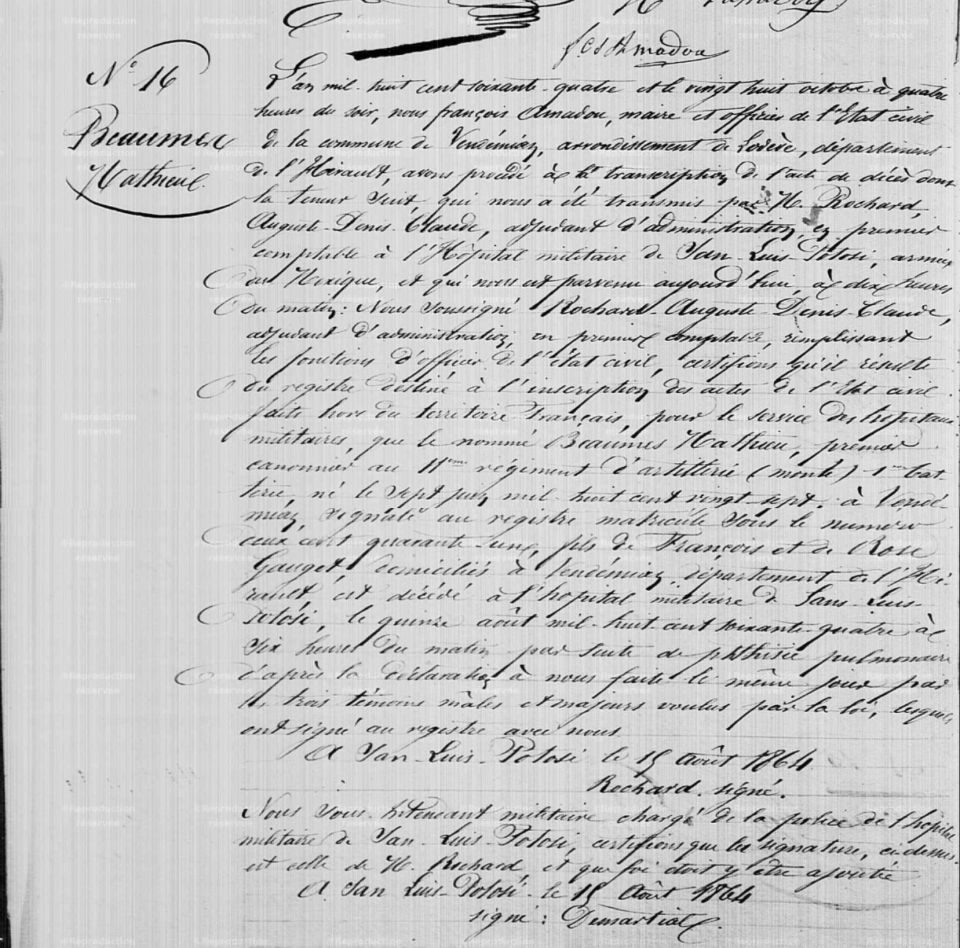 fcs Amadou
N° 16
Beaumes
Mathieu
L'an mil huit cent soixante quatre et le vingt huit octobre à quatre
heures du soir, nous françois Amadou, maire et officier de l'Etat civil
de la commune de Vendémian, arrondissement de Lodève, département
de l'Hérault, avons procédé à la transcription de l'acte de décès dont
la teneur suit, qui nous a été transmis par M. Rochard,
Auguste Denis Claude, adjudant d'administration, en premier
comptable à l'Hôpital militaire de San Luis Potosi, armée
du Mexique, et qui nous est parvenu aujourd'hui, à dix heures
du matin: Nous soussigné Rochard Auguste Denis Claude,
adjudant d'administration, en premier comptable, remplissant
les fonctions d'officier de l'état civil, certifions qu'il résulte
du registre destiné à l'inscription des actes de l'Etat civil
faits hors du territoire Français, pour le service des hopitaux
militaires, que le nommé Beaumes Mathieu, premier
canonnier au 11me régiment d'artillerie (monté) 1re bat
terie, né le sept juin mil huit cent vingt sept à Vendé
mian, signalé au registre matricule sous le numero
deux cent quarante une, fils de François et de Rose
Gauget, domiciliés à Vendémian, département de l'Hé
rault est décédé à l'hopital militaire de Sans Luis
Potosi, le quinze août mil huit cent soixante quatre à
six heures du matin par suite de phthisie pulmonaire
d'après la déclaration à nous faite le même jour par
les trois témoins mâles et majeurs voulus par la loi, lesquels
ont signé au registre avec nous.
A San Luis Potosi le 15 Août 1864
Rochard signé.
Nous sous Intendant militaire chargé de la police de l'hopital
militaire de San Luis Potosi, certifions que la signature, ci dessus
est celle de M. Rochard, et que foi doit y être ajoutée
A San Luis Potosi le 15 Août 1864
signé: Demartial